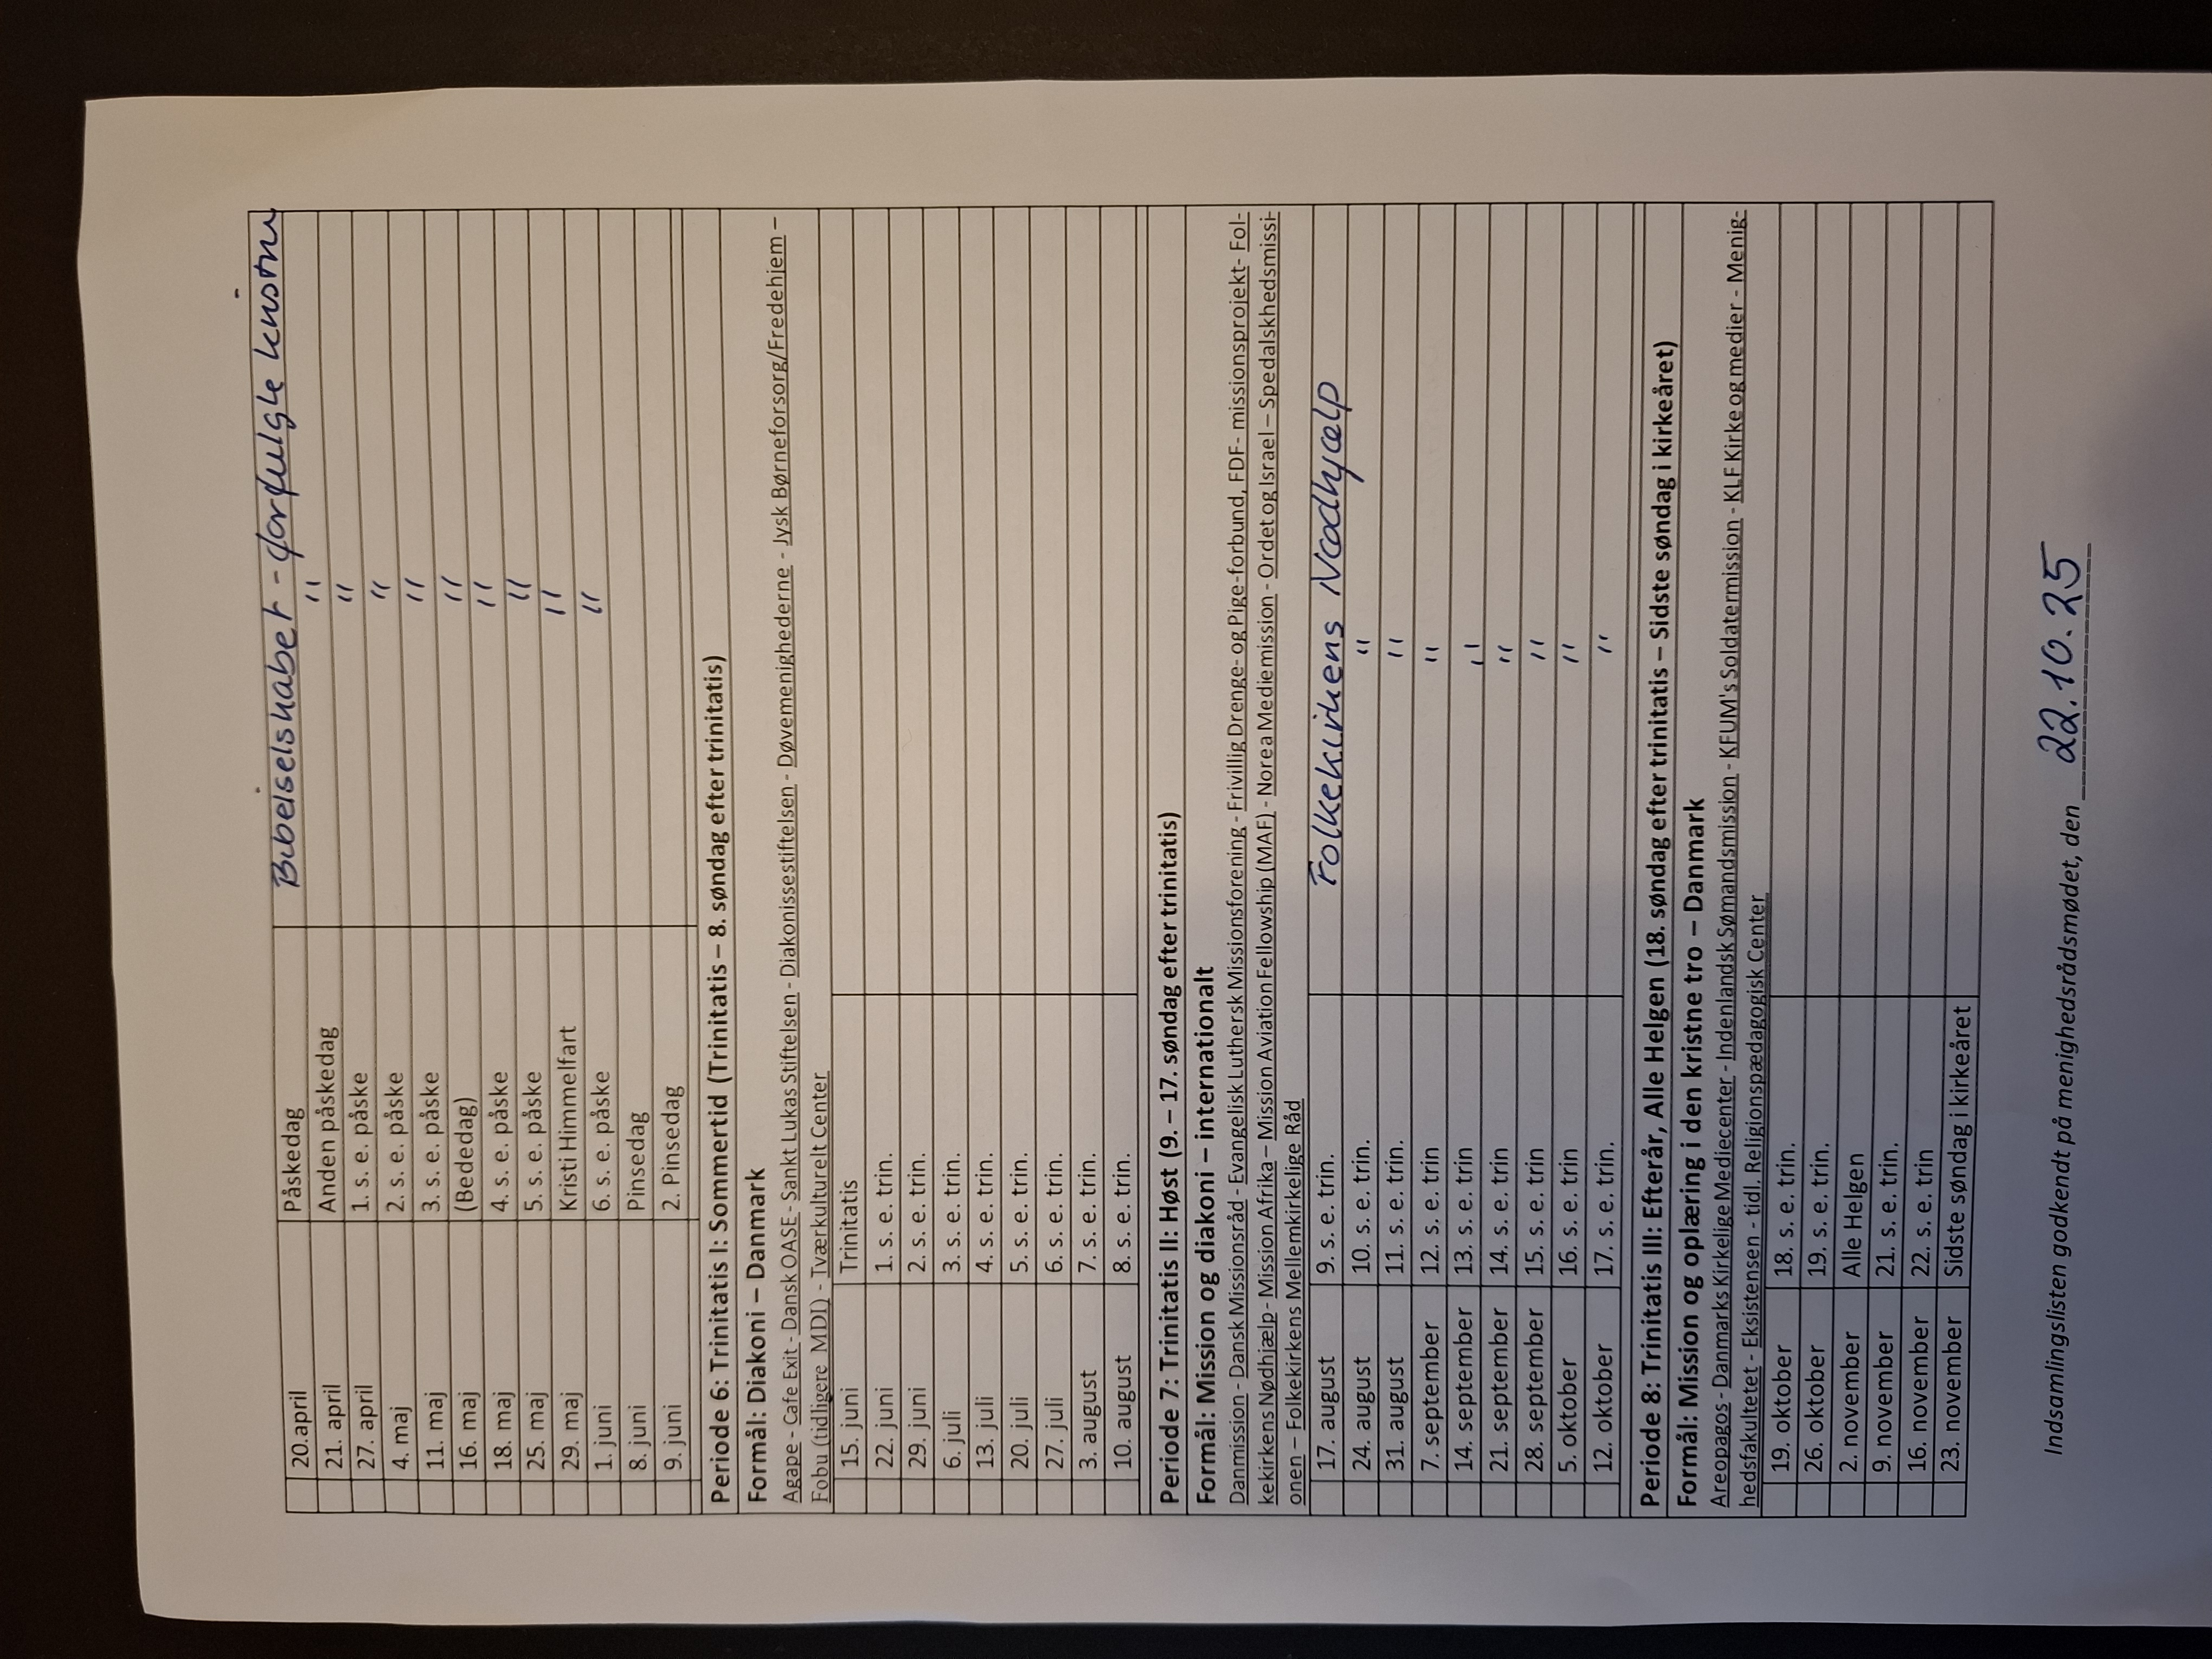 20.april Påskedag Bibelselskabet - forfulgte kristne
21. april Anden påskedag "
27. april 1. s. e. påske "
4. maj 2. s. e. påske "
11. maj 3. s. e. påske "
16. maj (Bededag) "
18. maj 4. s. e. påske "
25. maj 5. s. e. påske "
29. maj Kristi Himmelfart "
1. juni 6. s. e. påske "
8. juni Pinsedag
9. juni 2. Pinsedag
Periode 6: Trinitatis I: Sommertid (Trinitatis – 8. søndag efter trinitatis)
Formål: Diakoni – Danmark
Agape - Cafe Exit - Dansk OASE - Sankt Lukas Stiftelsen - Diakonissestiftelsen - Døvemenighederne - Jysk Børneforsorg/Fredehjem –
Fobu (tidligere MDI) - Tværkulturelt Center
15. juni Trinitatis
22. juni 1. s. e. trin.
29. juni 2. s. e. trin.
6. juli 3. s. e. trin.
13. juli 4. s. e. trin.
20. juli 5. s. e. trin.
27. juli 6. s. e. trin.
3. august 7. s. e. trin.
10. august 8. s. e. trin.
Periode 7: Trinitatis II: Høst (9. – 17. søndag efter trinitatis)
Formål: Mission og diakoni – internationalt
Danmission - Dansk Missionsråd - Evangelisk Luthersk Missionsforening - Frivillig Drenge- og Pige-forbund, FDF- missionsprojekt- Fol-
kekirkens Nødhjælp - Mission Afrika – Mission Aviation Fellowship (MAF) - Norea Mediemission - Ordet og Israel – Spedalskhedsmissi-
onen – Folkekirkens Mellemkirkelige Råd
17. august 9. s. e. trin. Folkekirkens Nødhjælp
24. august 10. s. e. trin. "
31. august 11. s. e. trin. "
7. september 12. s. e. trin "
14. september 13. s. e. trin "
21. september 14. s. e. trin "
28. september 15. s. e. trin "
5. oktober 16. s. e. trin "
12. oktober 17. s. e. trin. "
Periode 8: Trinitatis III: Efterår, Alle Helgen (18. søndag efter trinitatis – Sidste søndag i kirkeåret)
Formål: Mission og oplæring i den kristne tro – Danmark
Areopagos - Danmarks Kirkelige Mediecenter - Indenlandsk Sømandsmission - KFUM's Soldatermission - KLF Kirke og medier - Menig-
hedsfakultetet - Eksistensen - tidl. Religionspædagogisk Center
19. oktober 18. s. e. trin.
26. oktober 19. s. e. trin.
2. november Alle Helgen
9. november 21. s. e. trin.
16. november 22. s. e. trin
23. november Sidste søndag i kirkeåret
Indsamlingslisten godkendt på menighedsrådsmødet, den 22.10.25